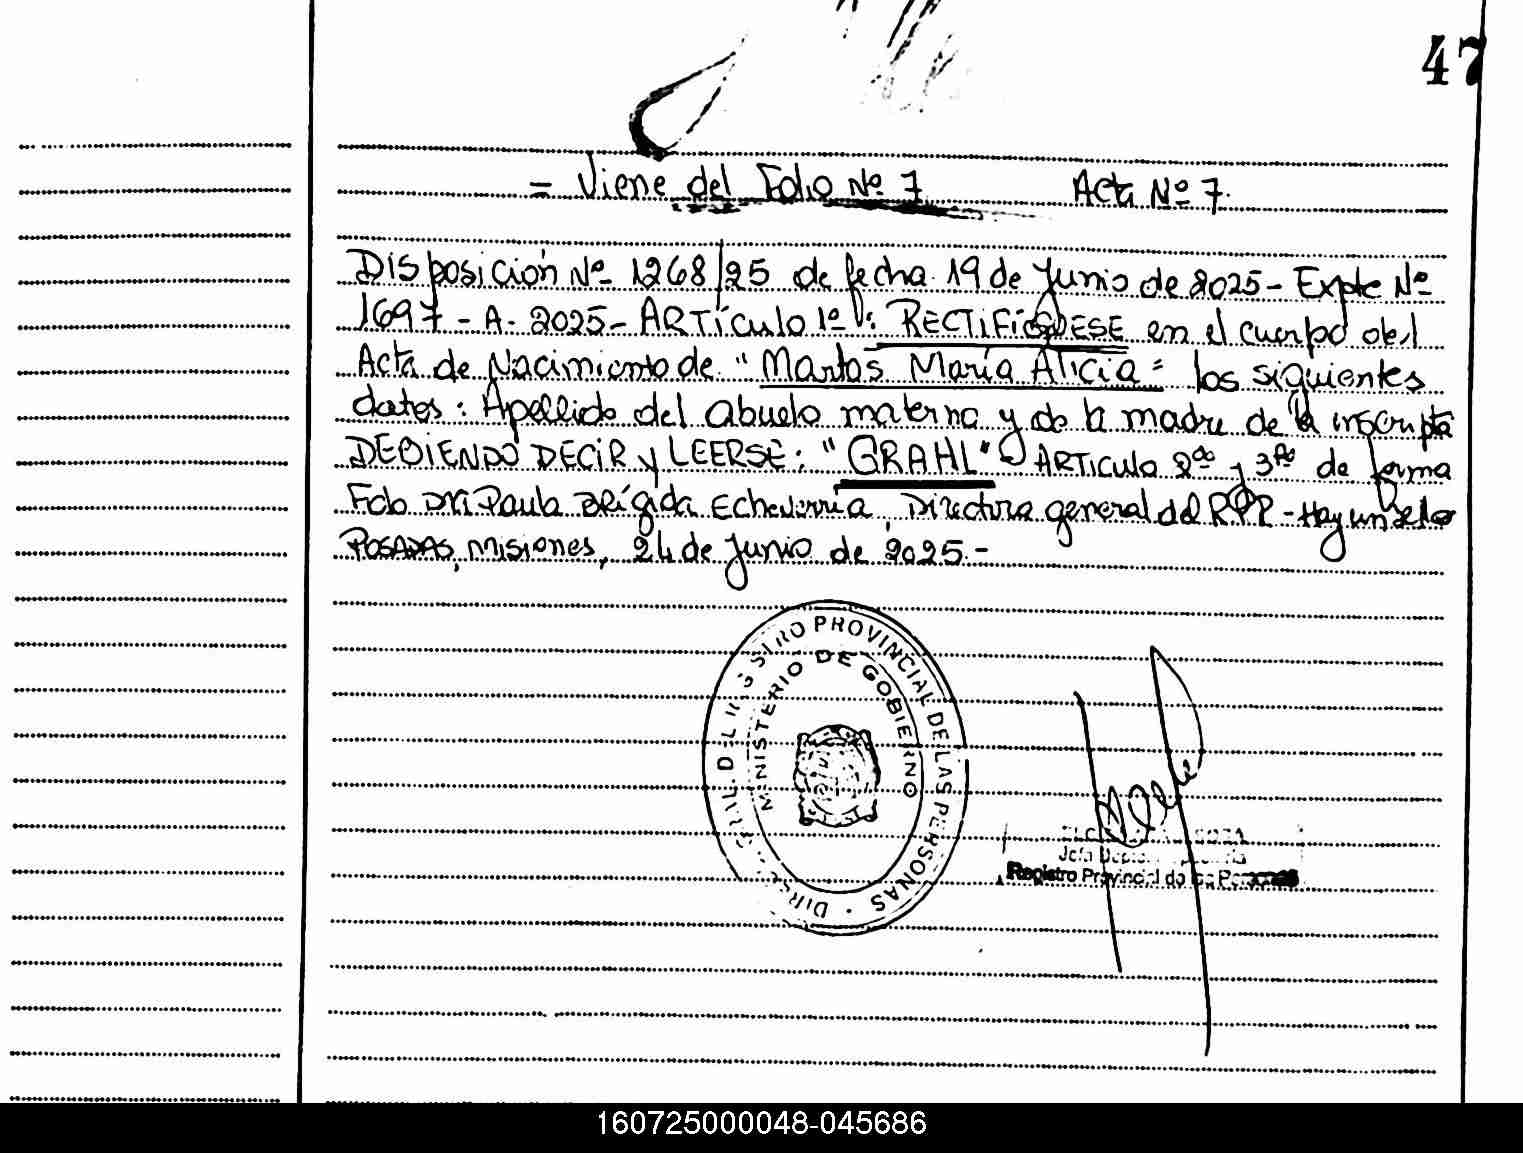 47
= Viene del Folio Nº 7 Acta Nº 7.
Disposición Nº 1268/25 de fecha 19 de Junio de 2025 - Expte Nº
1697 - A - 2025 - ARTículo 1º: RECTIFÍQUESE en el cuerpo del
Acta de Nacimiento de "Martos María Alicia" los siguientes
datos: Apellido del abuelo materno y de la madre de la inscripta
DEBIENDO DECIR y LEERSE: "GRAHL" ARTICULO 2do y 3ro de forma
Fdo Dra Paula Brígida Echeverría, Directora general del RPP - Hay un sello
POSADAS, Misiones, 24 de Junio de 2025.-
PROVINCIAL DE LAS PERSONAS
MINISTERIO DE GOBIERNO
Registro Provincial de las Personas
160725000048-045686